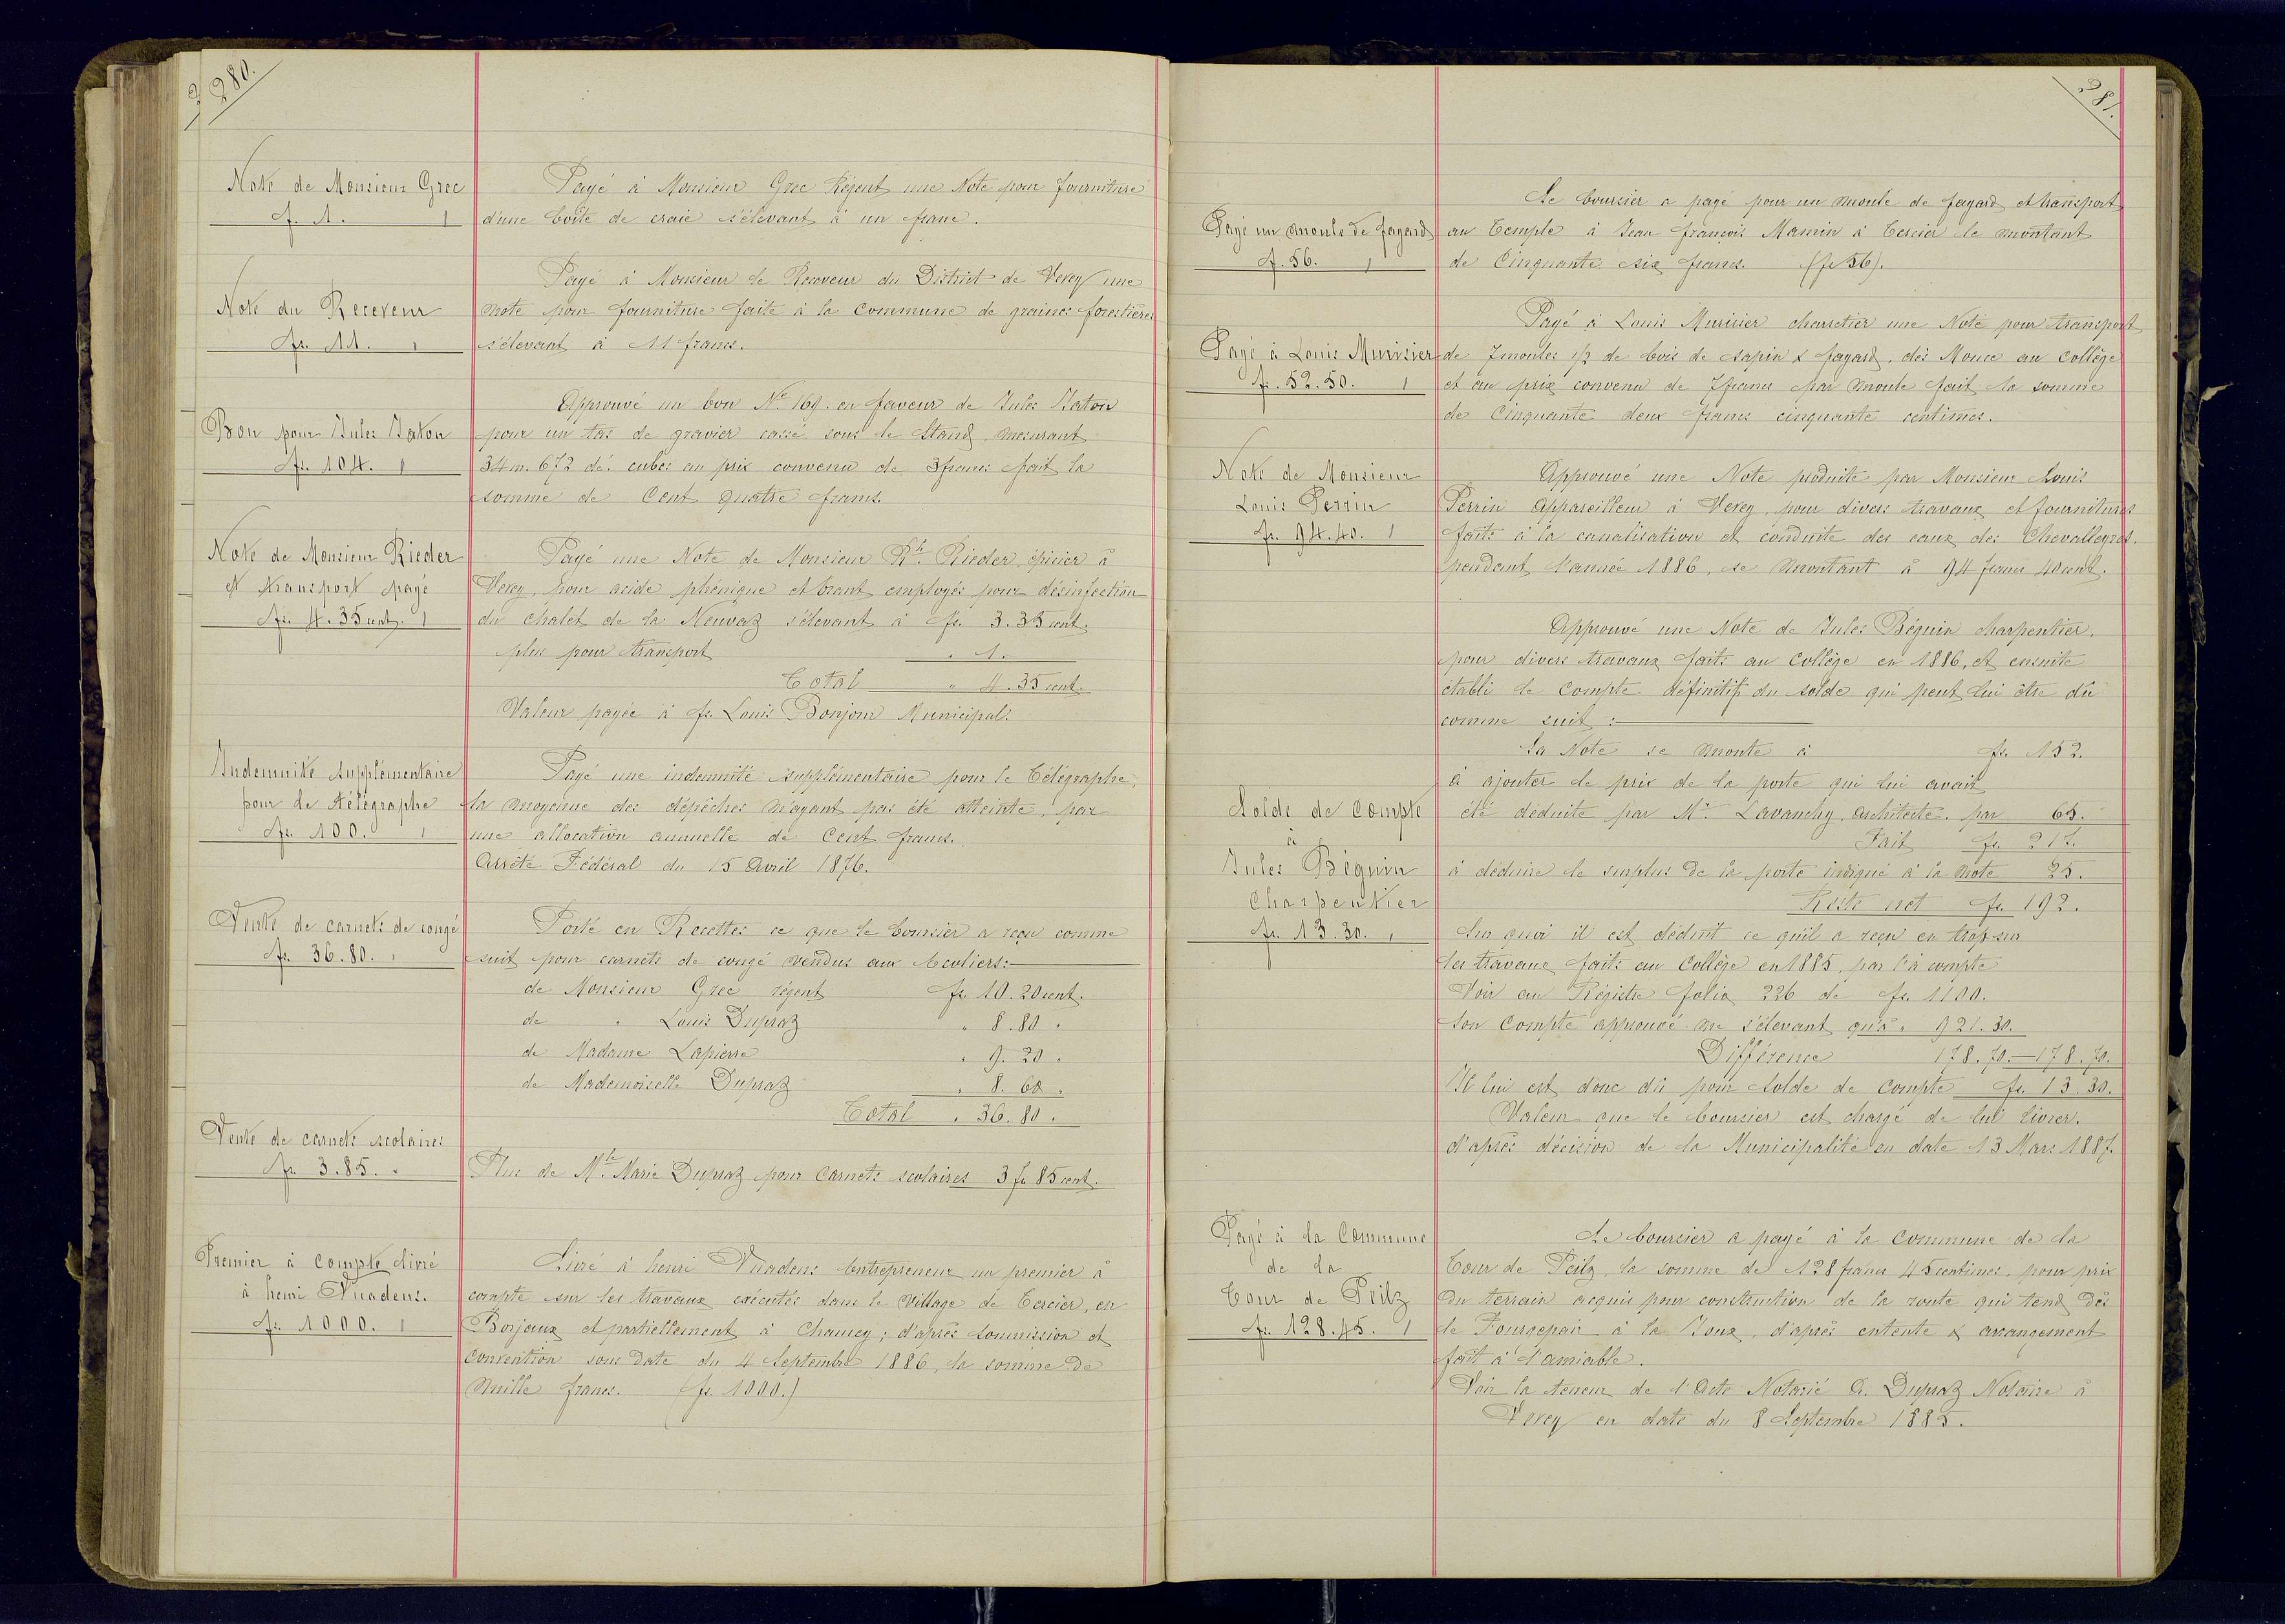 280.
Note de Monsieur Grec
f. 1.
Payé à Monsieur Grec Régent une Note pour fourniture
d'une boîte de craie s'élevant à un franc.
Note du Receveur
fr. 11.
Payé à Monsieur le Receveur du District de Vevey une
note pour fourniture faite à la Commune de graines forestières
s'élevant à 11 francs.
Bon pour Jules Jaton
fr. 104.
Approuvé un bon No. 169. en faveur de Jules Jaton
pour un tas de gravier cassé sous le Stand, mesurant
34 m. 672 dé. cubes au prix convenu de 3 francs fait la
somme de Cent quatre francs.
Note de Monsieur Rieder
et transport payé
fr. 4.35 cent.
Payé une Note de Monsieur Rh. Rieder, épicier à
Vevey, pour acide phénique et brant employés pour désinfection
du châlet de la Neuvaz s'élevant à fr. 3.35 cent.
plus pour transport " 1.
Total " 4.35 cent.
Valeur payée à fs. Louis Bonjour Municipal.
Indemnité supplémentaire
pour le télégraphe
fr. 100.
Payé une indemnité supplémentaire pour le Télégraphe,
la moyenne des dépêches n'ayant pas été atteinte, par
une allocation annuelle de Cent francs.
Arrêté Fédéral du 15 Avril 1876.
Vente de carnets de congé
fr. 36.80.
Porté en Recettes ce que le boursier a reçu comme
suit pour carnets de congé vendus aux Ecoliers:
de Monsieur Grec régent fr. 10.20 cent.
de " Louis Dupraz " 8.80 "
de Madame Lapierre " 9.20 "
de Mademoiselle Dupraz " 8.60 "
Total " 36.80 "
Vente de carnets scolaires
fr. 3.85.
Plus de Mlle Marie Dupraz pour Carnets scolaires 3 fr 85 cent.
Premier à Compte livré
à henri Vuadens.
fr. 1000.
Livré à henri Vuadens Entrepreneur un premier à
compte sur les travaux exécutés dans le Village de Tercier, en
Borjaux et partiellement à Chamey; d'après soumission et
Convention sous date du 4 Septembre 1886, la somme de
Mille francs. (fr. 1000.)
281.
Payé un moule de fayard
f. 56.
Le boursier a payé pour un moule de fayard et transport
au Temple à Jean françois Mamin à Tercier le montant
de Cinquante six francs. (fr 56).
Payé à Louis Murisier
fr. 52.50.
Payé à Louis Murisier charretier une Note pour transport
de 7 moules 1/2 de bois de sapin & fayard, dès Mouce au Collège
et au prix convenu de 7 francs par moule fait la somme
de Cinquante deux francs cinquante centimes.
Note de Monsieur
Louis Perrin
fr. 94.40.
Approuvé une Note produite par Monsieur Louis
Perrin Appareilleur à Vevey, pour divers travaux et fournitures
faits à la canalisation et conduite des eaux des Chevalleyres
pendant l'année 1886, se montant à 94 francs 40 cent.
Solde de Compte
à
Jules Béguin
Charpentier
fr. 13.30.
Approuvé une Note de Jules Béguin charpentier.
pour divers travaux faits au Collège en 1886, et ensuite
établi le Compte définitif du solde qui peut lui être dû
comme suit:
La Note se monte à fr. 152.
à ajouter le prix de la porte qui lui avait
été déduite par Mr. Lavanchy, architecte, par 65.
Fait fr. 217.
à déduire le surplus de la porte indiqué à la note 25.
Reste net fr. 192.
Sur quoi il est déduit ce qu'il a reçu en trop sur
les travaux faits au Collège en 1885, par l'à compte
Voir au Régistre folio 226 de fr. 1100.
son Compte approuvé ne s'élevant qu'à " 921.30.
Différence 178.70.—178.70.
Il lui est donc dû pour Solde de Compte fr. 13.30.
Valeur que le boursier est chargé de lui livrer.
d'après décision de la Municipalité en date 13 Mars 1887.
Payé à la Commune
de la
Tour de Peilz
fr. 128.45.
Le boursier a payé à la Commune de la
Tour de Peilz, la somme de 128 francs 45 centimes, pour prix
du terrain acquis pour construction de la route qui tend dès
le Fourgepan à la Joux, d'après entente & arrangement
fait à l'amiable.
Voir la teneur de l'Acte Notarié A. Dupraz Notaire à
Vevey en date du 8 Septembre 1885.